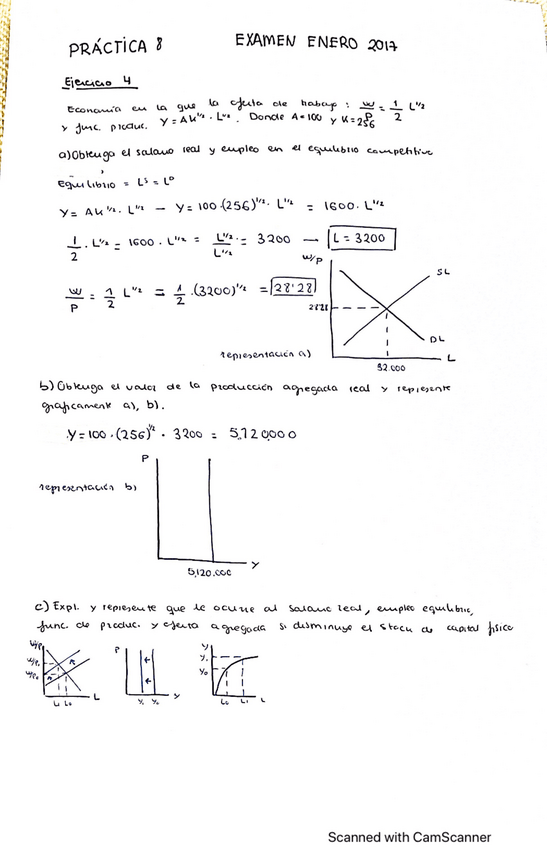 PRÁCTICA 8 EXAMEN ENERO 2017
Ejercicio 4
Economía en la que la oferta de trabajo: W/P = 1/2 L^1/2
y func. produc. Y = AK^1/2 · L^1/2. Donde A=100 y K=256
a) Obtenga el salario real y empleo en el equilibrio competitivo
Equilibrio = L^s = L^D
Y = AK^1/2 · L^1/2 — Y = 100·(256)^1/2 · L^1/2 = 1600 · L^1/2
1/2 · L^1/2 = 1600 · L^1/2 = L^1/2/L^1/2 = 3200 — L = 3200
W/P = 1/2 L^1/2 = 1/2 · (3200)^1/2 = 28'28
W/P
SL
28'28
DL
L
32.000
representación a)
b) Obtenga el valor de la producción agregada real y represente
gráficamente a), b).
Y = 100 · (256)^1/2 · 3200 = 5,120,000
P
representación b)
Y
5,120.000
c) Expl. y represente que le ocurre al salario real, empleo equilibrio,
func. de produc. y oferta agregada si disminuye el stock de capital físico
W/P
W/P₁
W/P₀
L₁ L₀ L
P
Y₁ Y₀ Y
Y
Y₁
Y₀
L₀ L₁ L
Scanned with CamScanner